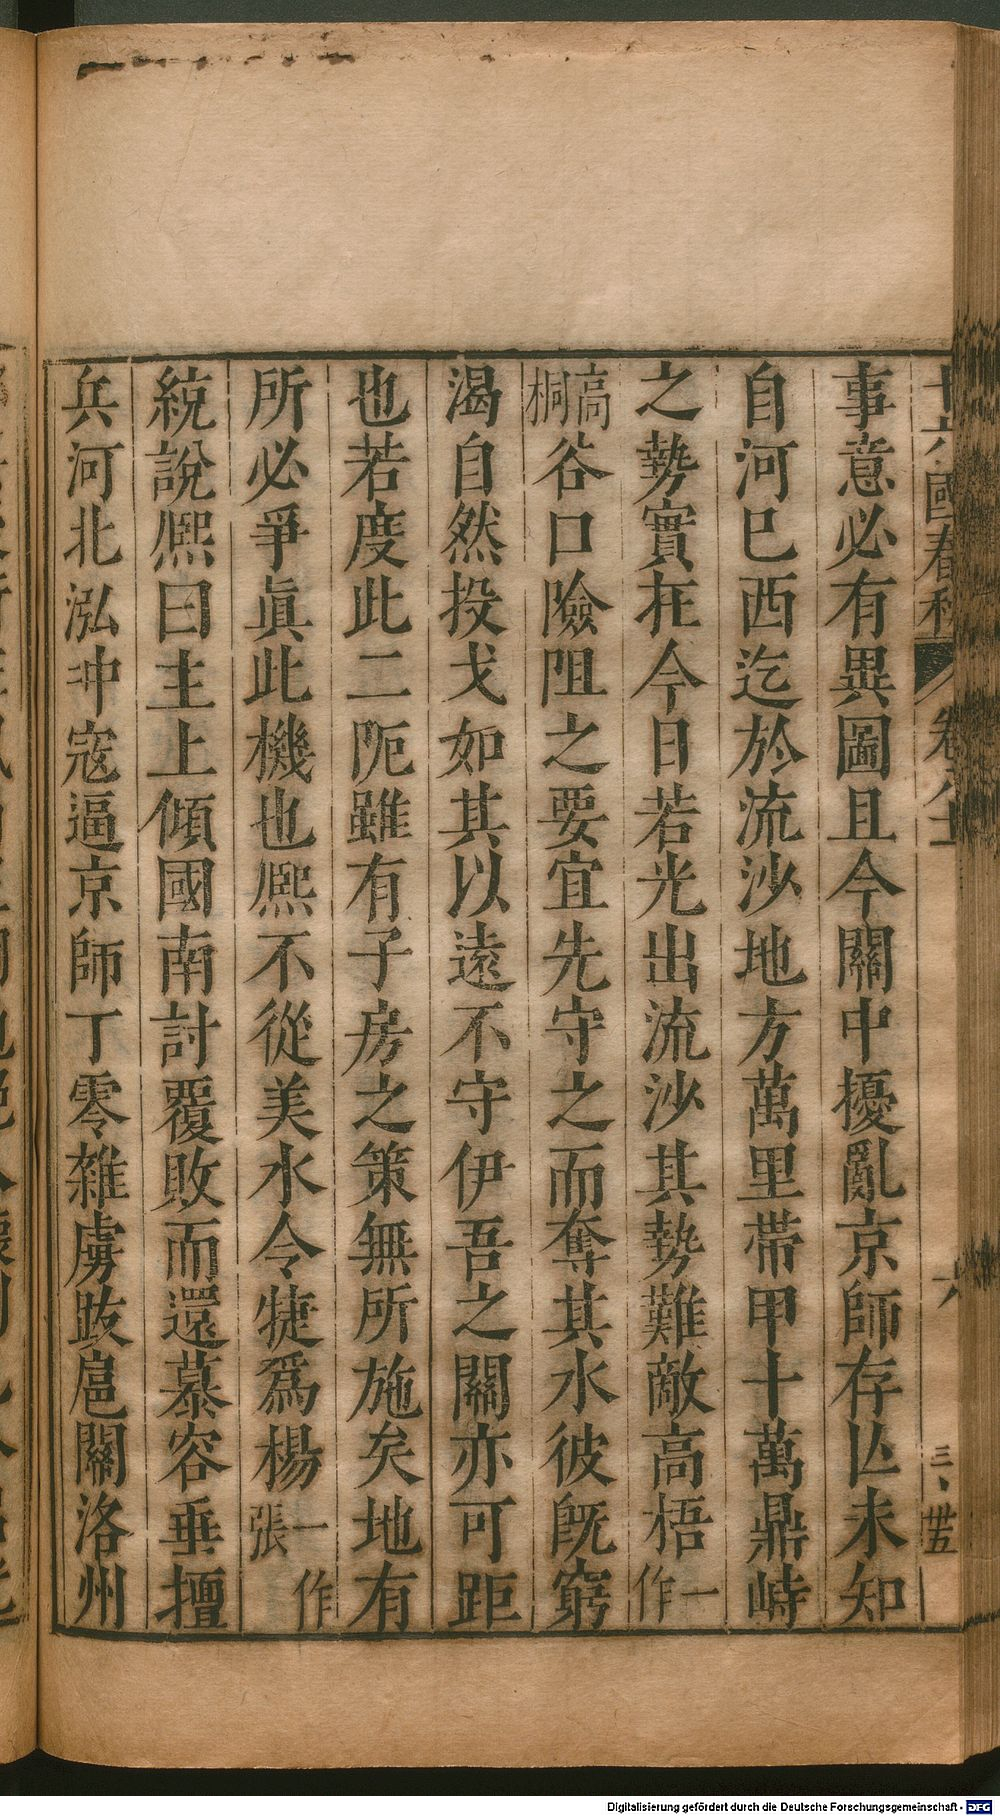 十六國春秋 卷八十 六 三、卅五
事意必有異圖且今關中擾亂京師存亾未知
自河巳西迄於流沙地方萬里帶甲十萬鼎峙
之勢實在今日若光出流沙其勢難敵高梧一作
高桐谷口險阻之要宜先守之而奪其水彼旣窮
渴自然投戈如其以遠不守伊吾之關亦可距
也若度此二阨雖有子房之策無所施矣地有
所必爭眞此機也熙不從美水令犍爲楊一作張
統說熙曰主上傾國南討覆敗而還慕容垂擅
兵河北泓冲寇逼京師丁零雜虜跋扈關洛州
Digitalisierung gefördert durch die Deutsche Forschungsgemeinschaft - DFG